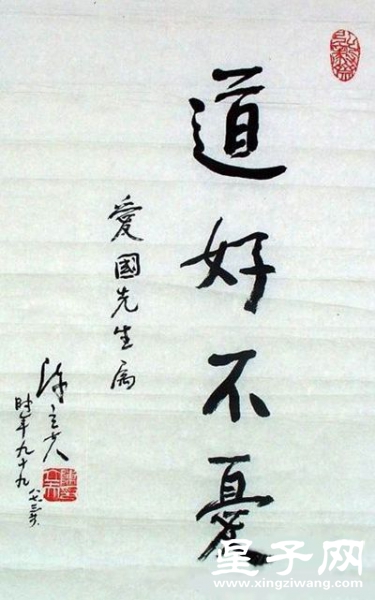 道好不憂
愛國先生属
陳立夫
时年九十九
星子网
www.xingziwang.com